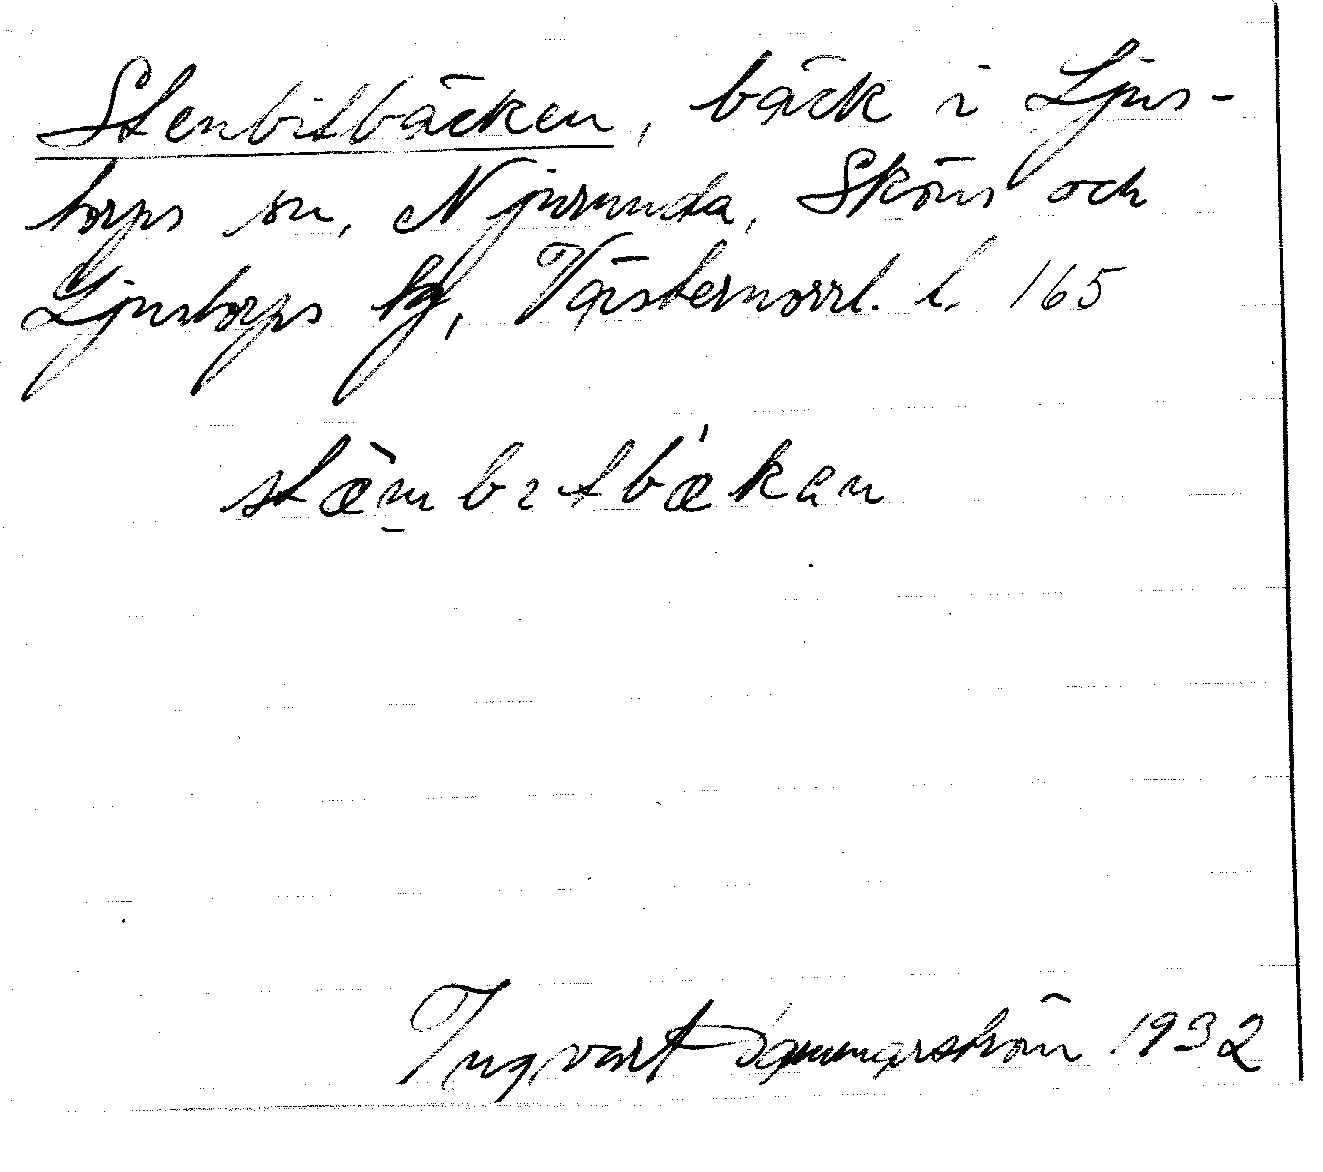 Stenbitbäcken, bäck i Ljus-
torps sn, Njurunda, Sköns och
Ljustorps tg, Västernorrl. l. 165
stæ̀m̱bɩtbækan
Ingvart 1932